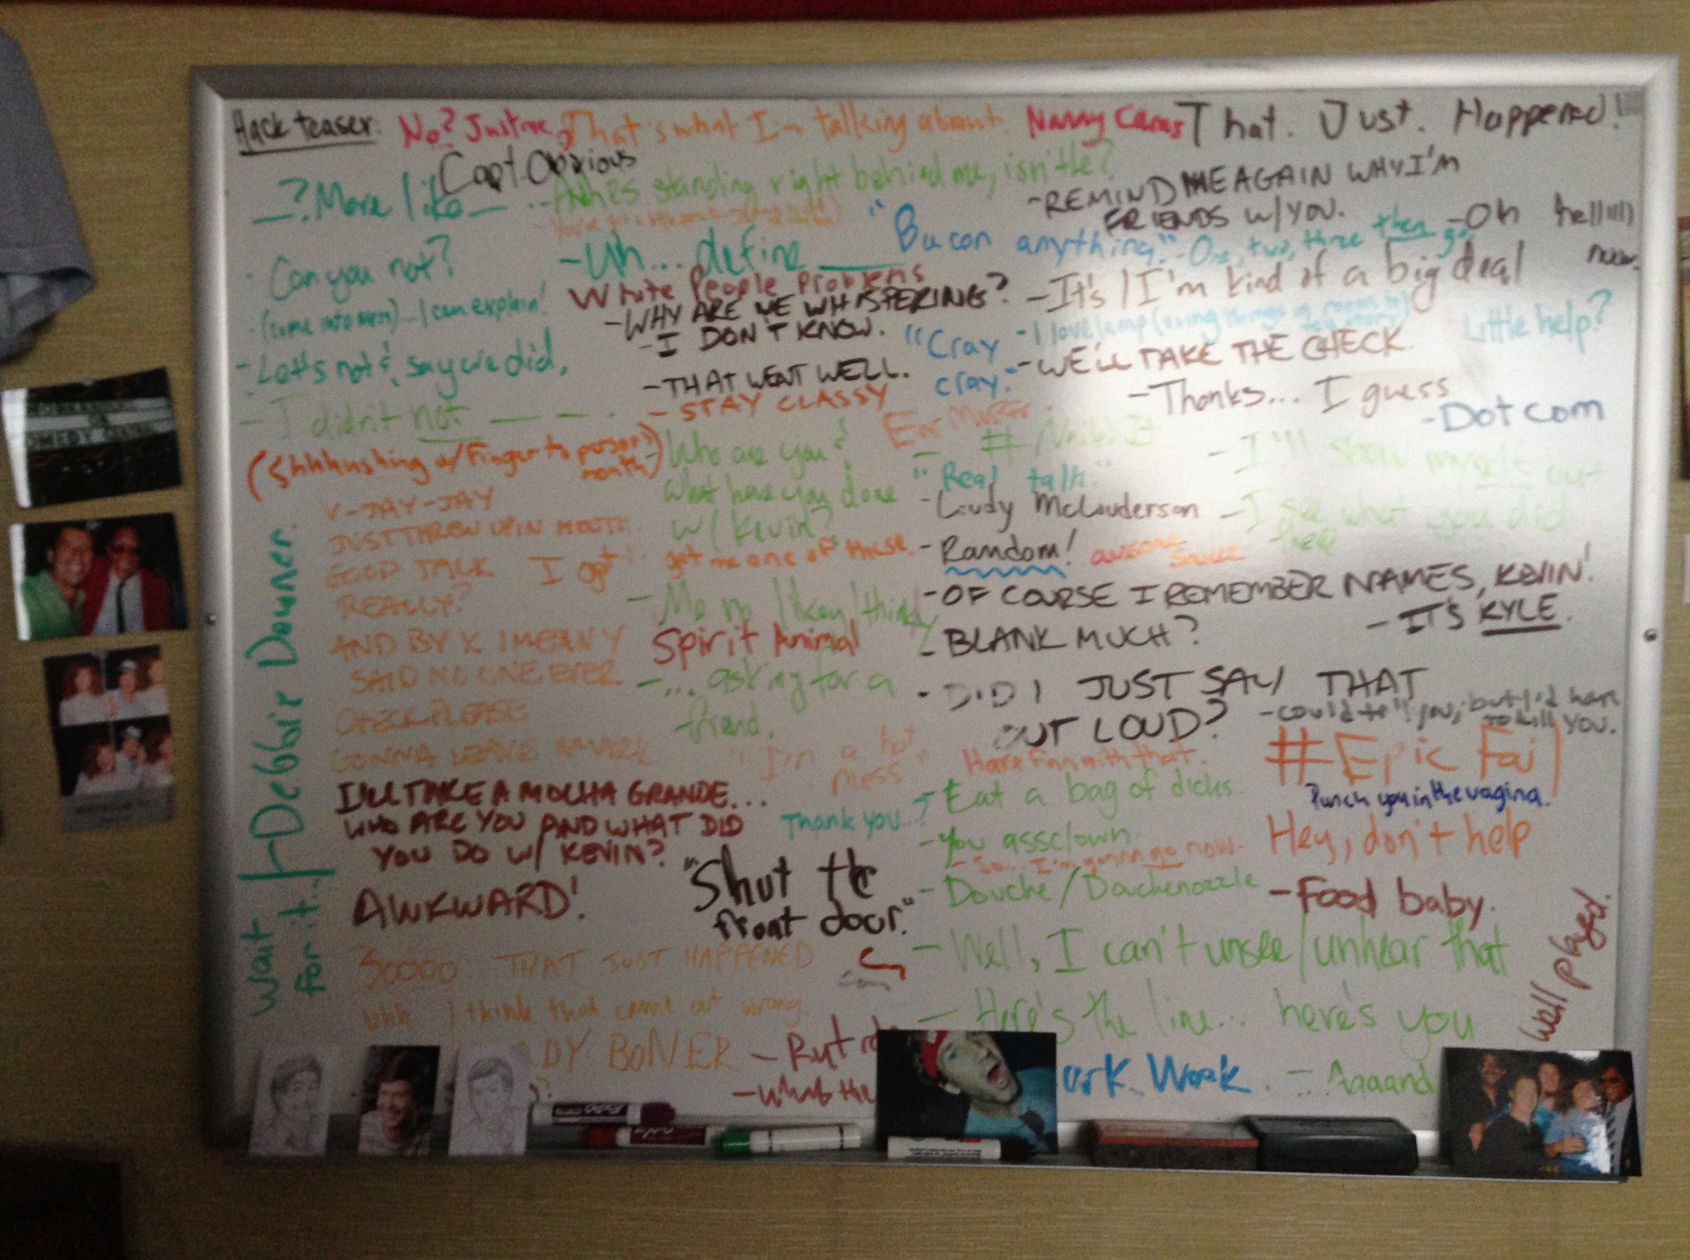 Hack teaser: No? Just me? That's what I'm talking about. Nanny Cams That. Just. Happened!
Capt Obvious
__? More like __ . - standing right behind me, isn't he?
- REMIND ME AGAIN WHY I'M
FRIENDS W/ YOU.
- Oh hellllll
naw.
"Bacon anything." - One, two, three then go
- Can you not?
- Uh... define ____
White People Problems
- WHY ARE WE WHISPERING?
- I DON'T KNOW.
- It's / I'm kind of a big deal
- (come into mess)... I can explain!
- I love lamp (using things in room to
Little help?
"Cray
cray."
- WE'LL TAKE THE CHECK.
- Let's not & say we did.
- THAT WENT WELL.
- Thanks... I guess
- Dot com
- I didn't not __ __ .
- STAY CLASSY
(Shhhushing w/ finger to person's
mouth)
- Who are you?
What have you done
w/ Kevin?
- # Nailed It
- I'll show myself out
"Real talk."
- Loudy McLouderson
- I see what you did
there
V-JAY-JAY
JUST THREW UP IN MOUTH
GOOD TALK
I got
get me one of these.
- Random! awesome
sauce
REALLY?
- Me no likey / thinky
- OF COURSE I REMEMBER NAMES, KEVIN!
- IT'S KYLE.
AND BY X I MEAN Y
Spirit Animal
- BLANK MUCH?
SAID NO ONE EVER
- ... asking for a
friend.
- DID I JUST SAY THAT
OUT LOUD?
- could tell you, but I'd have
to kill you.
CHECK PLEASE
GONNA LEAVE A MARK
"I'm a hot
mess"
Have fun with that.
#Epic Fail
Punch you in the vagina.
I'LL TAKE A MOCHA GRANDE...
WHO ARE YOU AND WHAT DID
YOU DO W/ KEVIN?
Thank you?
- Eat a bag of dicks
- You assclown.
- So... I'm gonna go now.
Hey, don't help
AWKWARD!
"Shut the
front door."
- Douche/Douchenozzle
- Food baby.
SOOOO THAT JUST HAPPENED
- Well, I can't unsee/unhear that
Uhh I think that came out wrong.
- Here's the line... here's you
ADY BONER
- Rut ro
- What the
ork Work.
- Aaaand
- Debbie Downer.
Wait
for it..
Well played.
EXPO